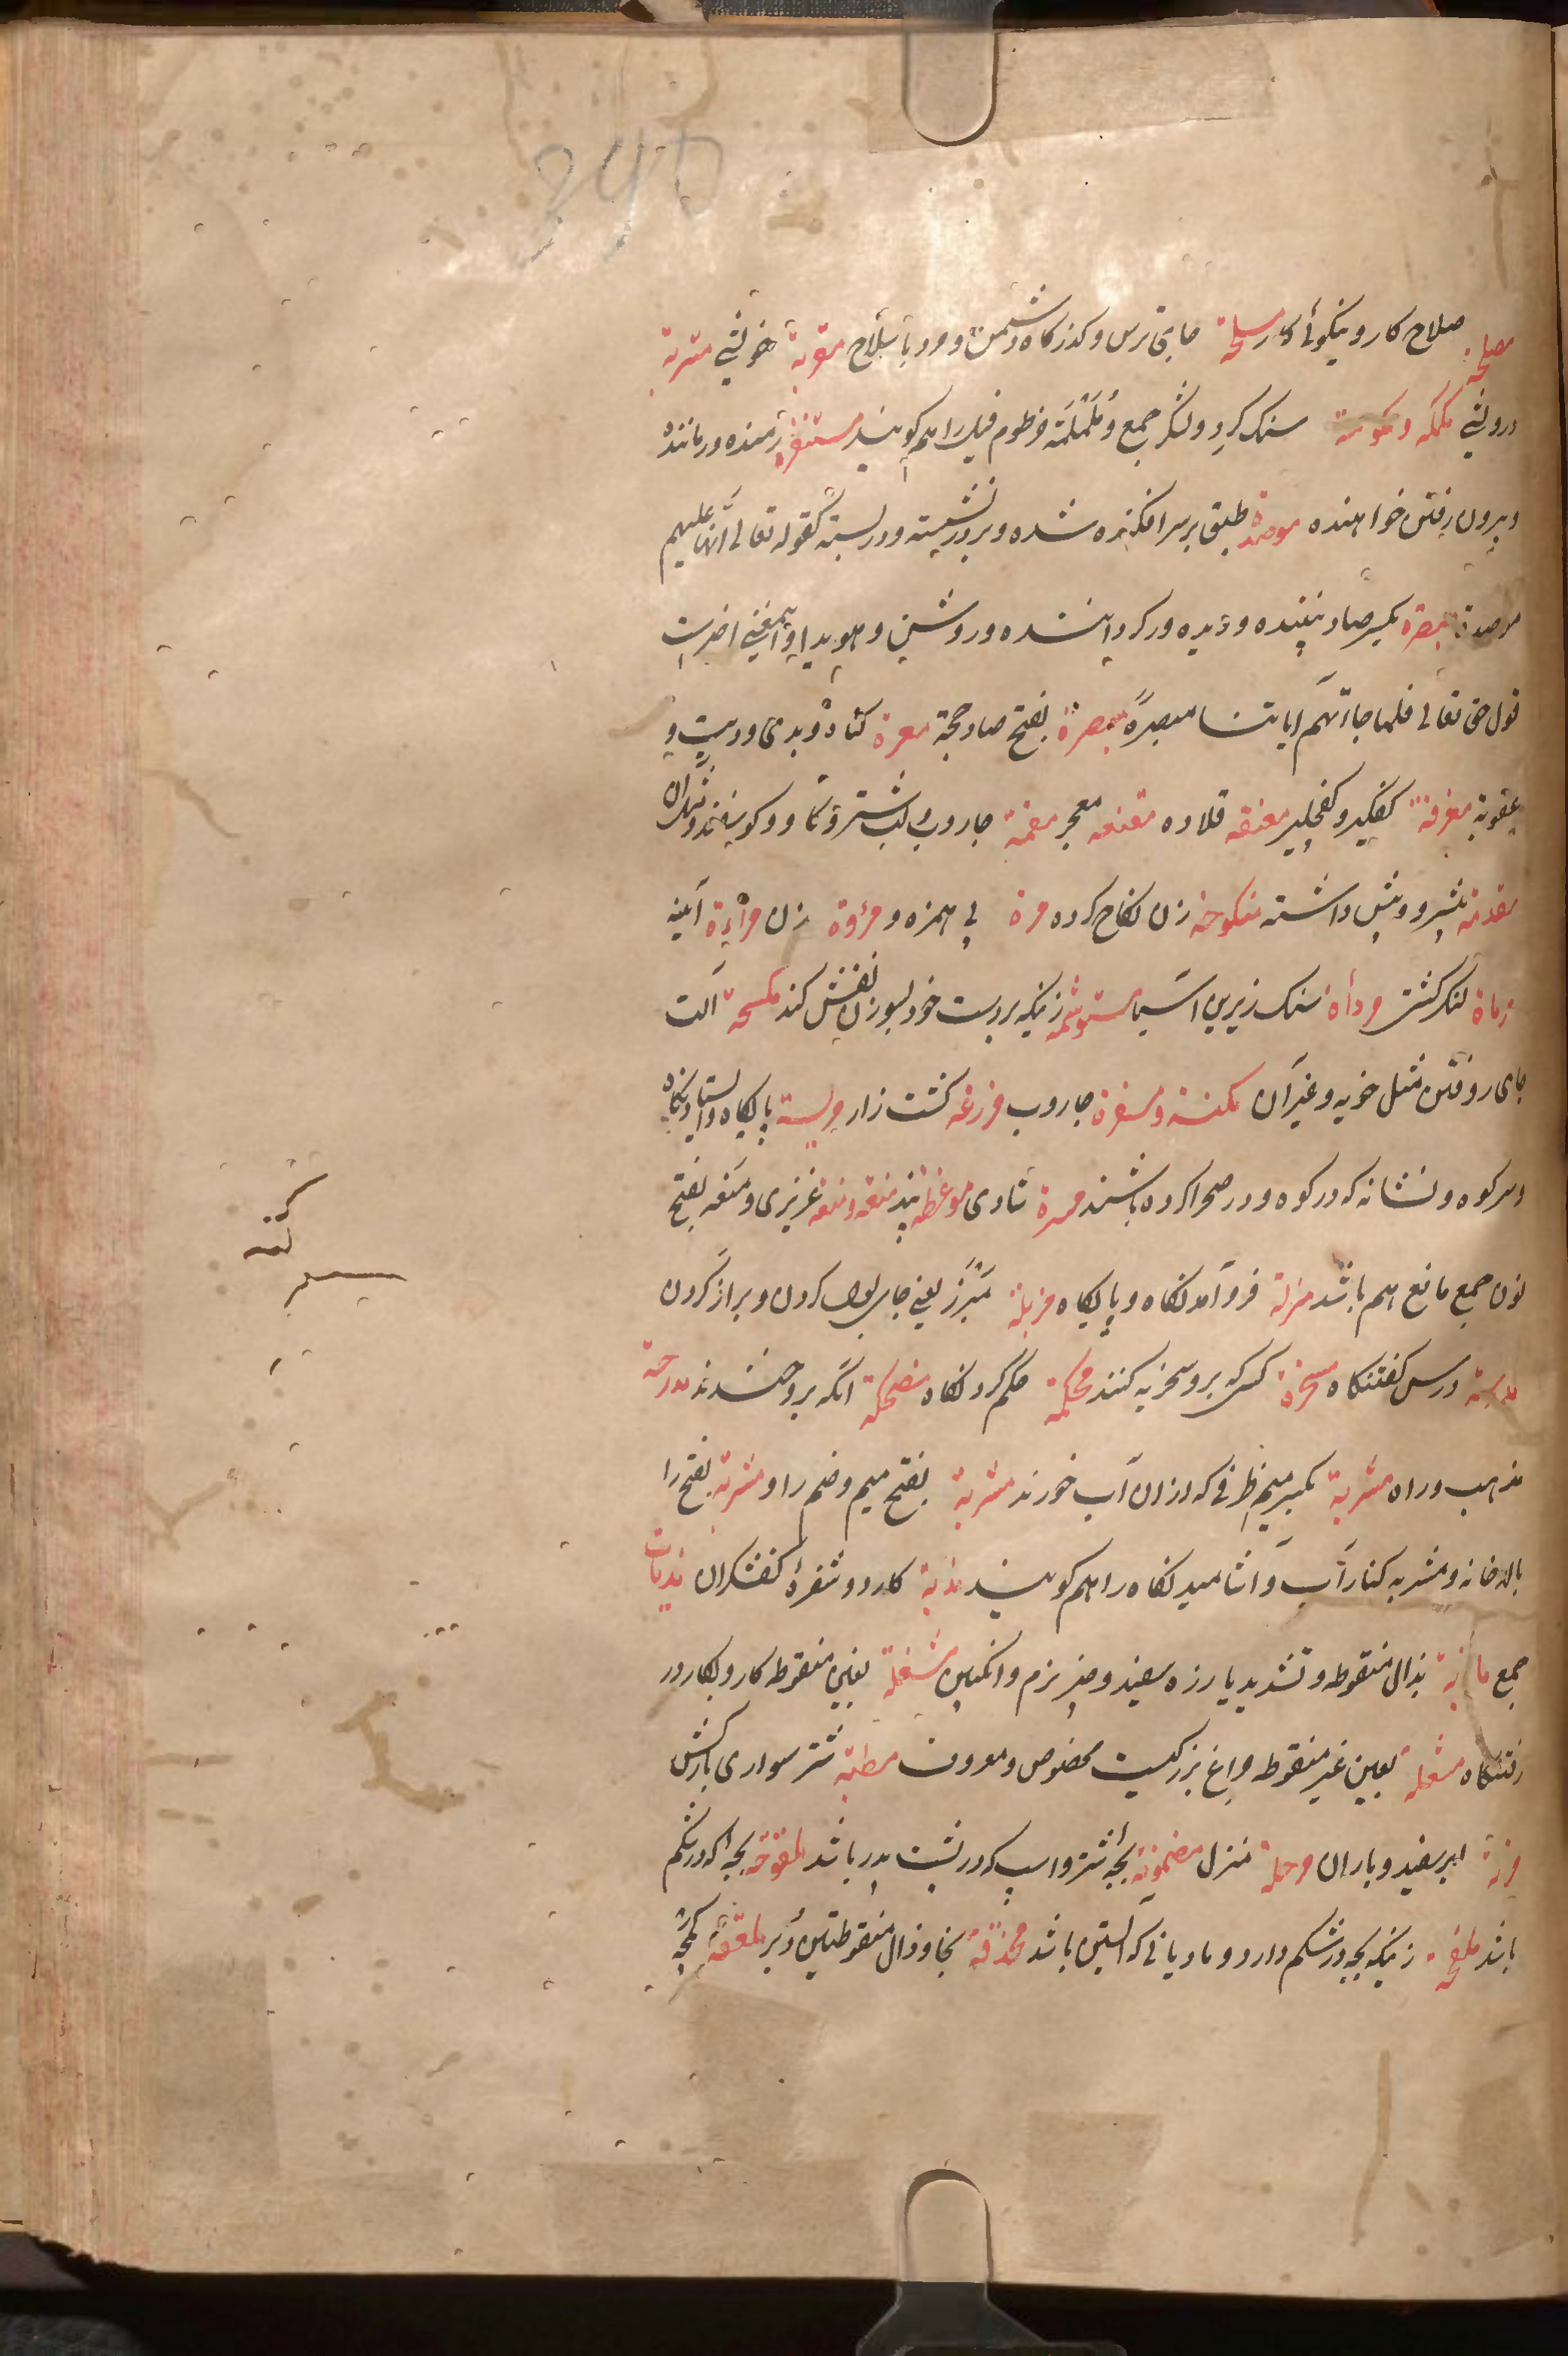 مصلحة صلاح کار و نیکوئی کار مسلحة جای ترس و کذرکاه دشمن و مرد با سلاح مقربة خویشی متربة
درویشی ململمة سنک کرد و لشکر جمع و مُلَمْلَمَة خرطوم فیل را هم کویند مستنفرة رمنده و رمانند
و بیرون رفتن خواهنده موصدة طبق بر سر افکنده شده و بر در نشسته و در بسته کقوله تعالی انها علیهم
موصدة مبصرة بکسر صاد بیننده و دیده ور کردانیده و روشن و هویدا و بمعنی اخیر است
قول حق تعالی فلما جاءتهم ایاتنا مبصرةً مبصرة بفتح صاد حجة معرة کناه و بدی و دیت و
عقوبة مغرفة کفکیر و کفچلیز معنقه قلاده مقنعه معجر مقمة جاروب و لب شتر و کاو و کوسفند و مانند آن
مقدمة پیشرو و پیش داشته منکوحة زن نکاح کرده مرة بی همزه و مرؤة زن مرآءة آئینه
مرساة لنکر کشتی مرداة سنک زیرین آسیا مستوشمه زنیکه بر دست خود بسوزن نقش کند مکسحة آلت
جای روفتن مثل خویه و غیر آن مکنسة و مسفرة جاروب مزرعه کشت زار مرتبة پایکاه و ایستادنکاه
و سر کوه و نشانه که در کوه و در صحرا کرده باشند مسرة شادی موعظة پند منعة و منعة عزیزی و منعه بفتح
نون جمع مانع هم باشد منزلة فرو آمدنکاه و پایکاه مزبلة مَبْرَز یعنی جای بول کردن و براز کردن
مدرسة درس کفتنکاه مسخرة کسی که برو سخریه کنند محکمة حکم کردنکاه مضحکة آنکه برو خندند مدرجة
مذهب و راه مشربة بکسر میم ظرفی که از ان آب خورند مشربة بفتح میم و ضم را و مشربة بفتح را
بالاخانه و مشربه کنار آب و آشامیدنکاه را هم کویند مدیة کارد و شفرهٔ کفشکران مدیات
جمع ماذیة بذال منقوطه و تشدید یا زره سفید و چیز نرم و انکبین مشغلة بغین منقوطه کار و بکار در
رفتنکاه مشعلة بعین غیر منقوطه چراغ بزرکیست مخصوص و معروف مطیّة شتر سواری بارکش
مزنة ابر سفید و باران مرحلة منزل مضمونة بچهٔ شتر و اسپ که در پشت پدر باشد ملقوحة بچهٔ که در شکم
باشد ملقحة زنیکه بچه در شکم دارد و مادیانی که آبستن باشد مخذفة بخا و ذال منقوطتین دُبر ملعقة کمچه